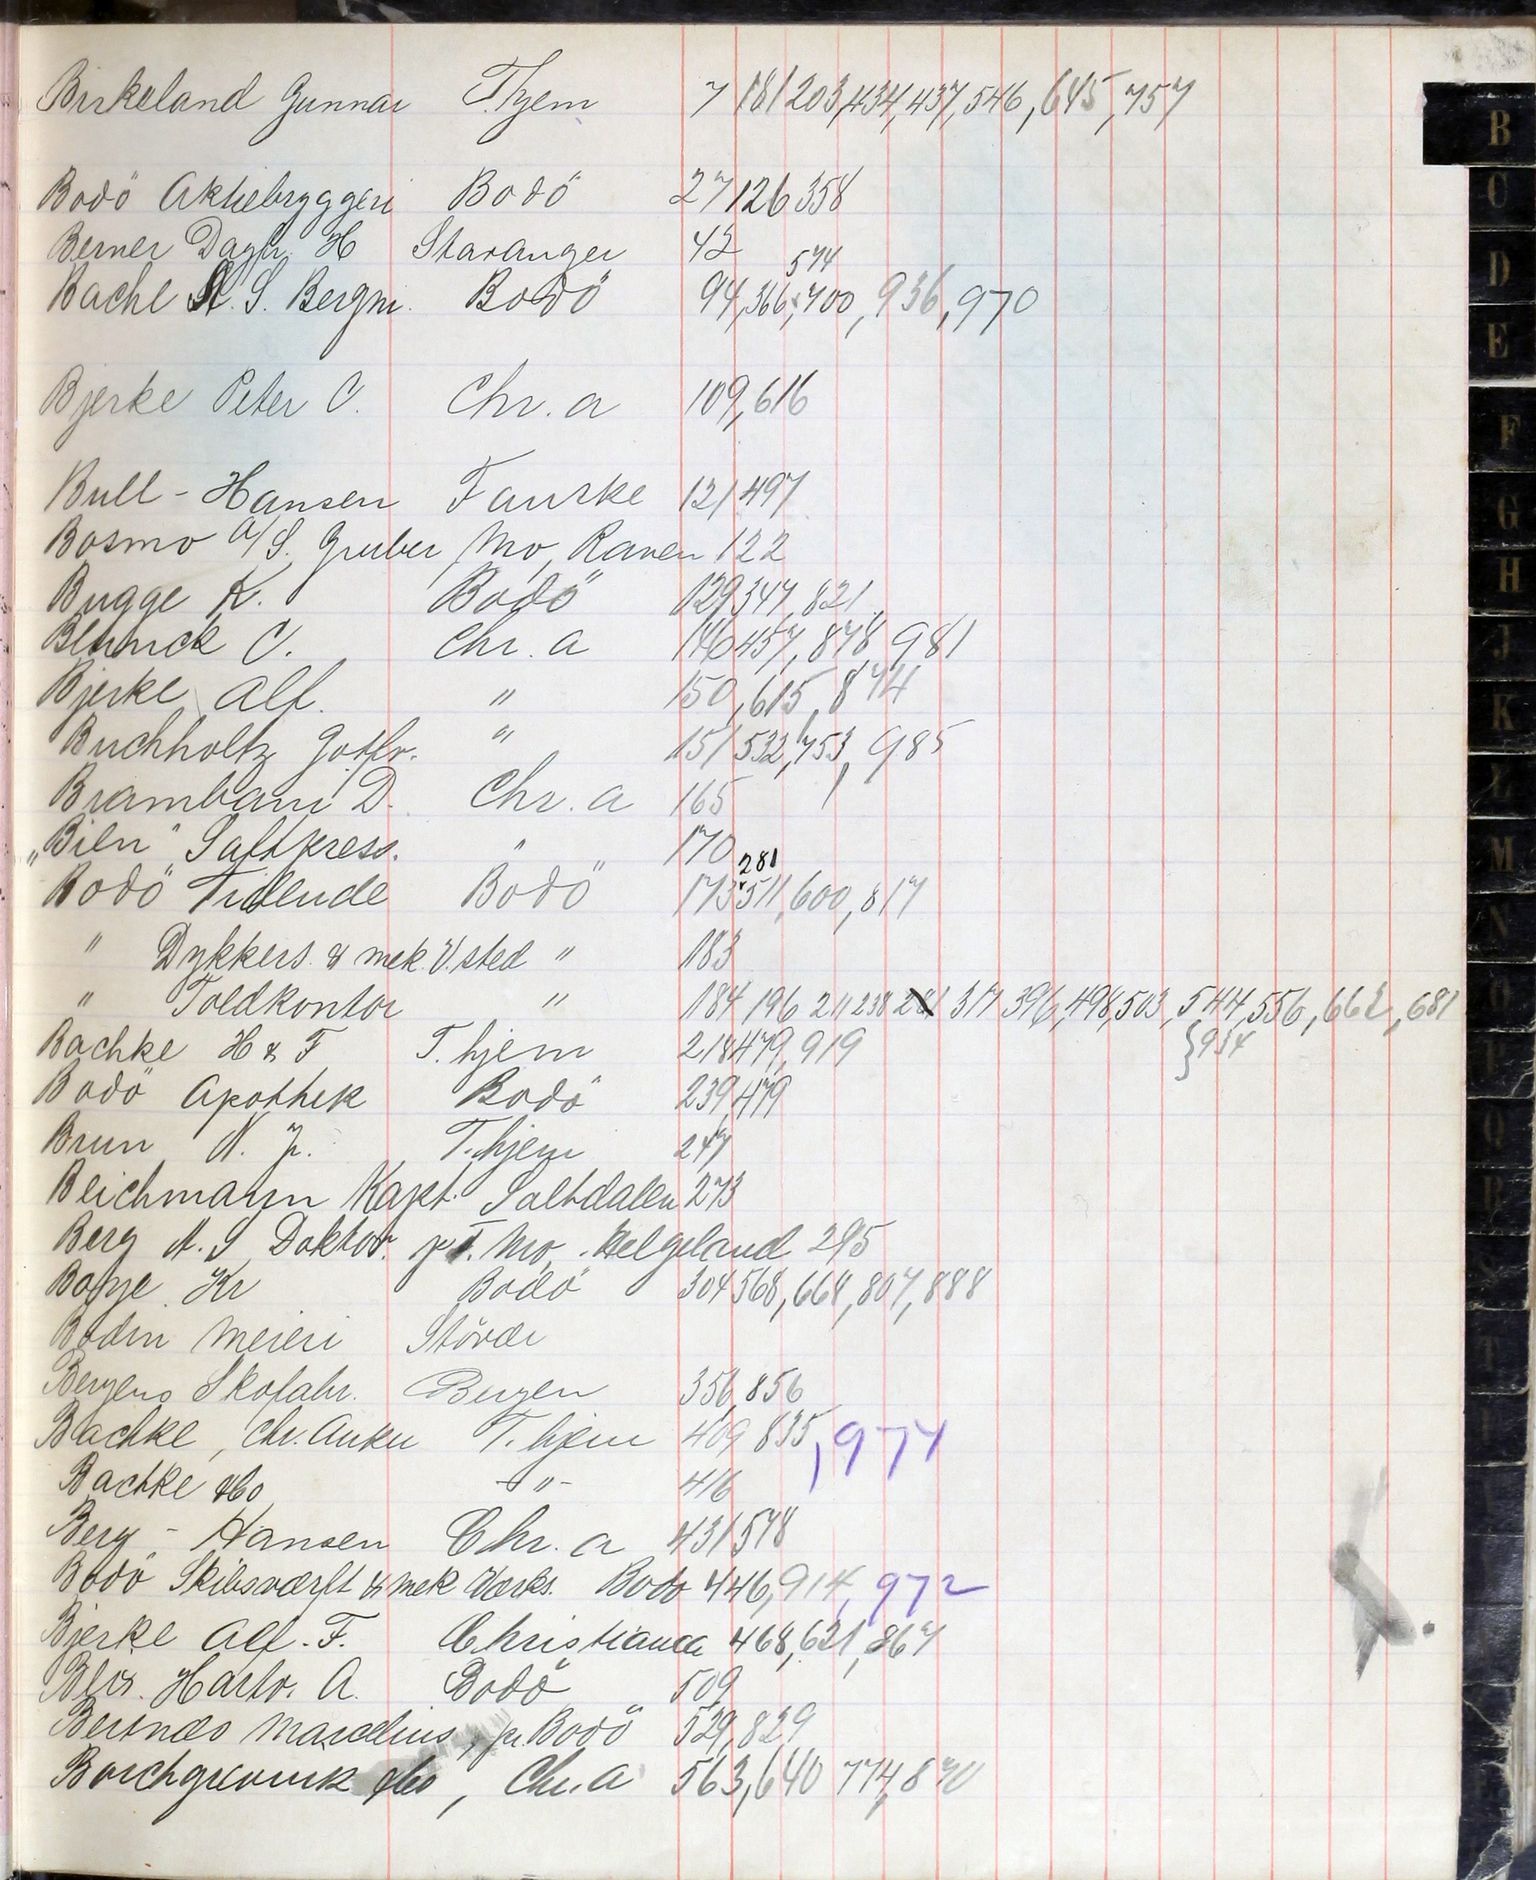 Birkeland Gunnar T.hjem 7 181 203,434,437,546,645,757
Bodö Aktiebryggeri Bodö 27 126 358
Berner Dagfr. H Stavanger 42
574
Bache A. S. Bergm. Bodö 94,366,700,936,970
Bjerke Peter C. Chr.a 109,616
Bull-Hansen Fauske 121 497
Bosmo A/S. Gruber Mo, Ranen 122
Bugge K. Bodö 129 347,821
C. Chr.a 146 457,878,981
Bjerke Alf. " 150,615,874
Buchholtz Gotfr. " 151 532,753,985
D. Chr.a 165
„Bien" Saltpress. " 170
281
Bodö Tidende Bodö 173 511,600,817
" Dykkers. & mek. V.sted " 183
" Toldkontor " 184 196 211 238 281 317 396,498,503,544,556,662,681
}934
Bachke H & F T.hjem 218 479,919
Bodö Apothek Bodö 239,479
Brun N. J. T.hjem 247
Bleichmann Kapt. Saltdalen 273
Berg A. S Doktor. p.T. Mo, Helgeland 295
Bopje Kr Bodö 304 568,664,807,888
Bodin Meieri Stöver
Bergens Skofabr. Bergen 356,856
Bachke, Chr. Anker T.hjem 409 835,974
Bachke &Co -"- 416
Berg-Hansen Chr.a 431 578
Bodö Skibsværft & Mek Værks. Bodö 446,914,972
Bjerke Alf. F. Christiania 468,621,867
Harto. A. Bodö 509
Bertnæs Marelius, pr. Bodö 529,829
Borchgrevink &Co, Chr.a 563,640 774,870
B
C
D
E
F
G
H
J
K
L
M
N
O
P
Q
R
S
T